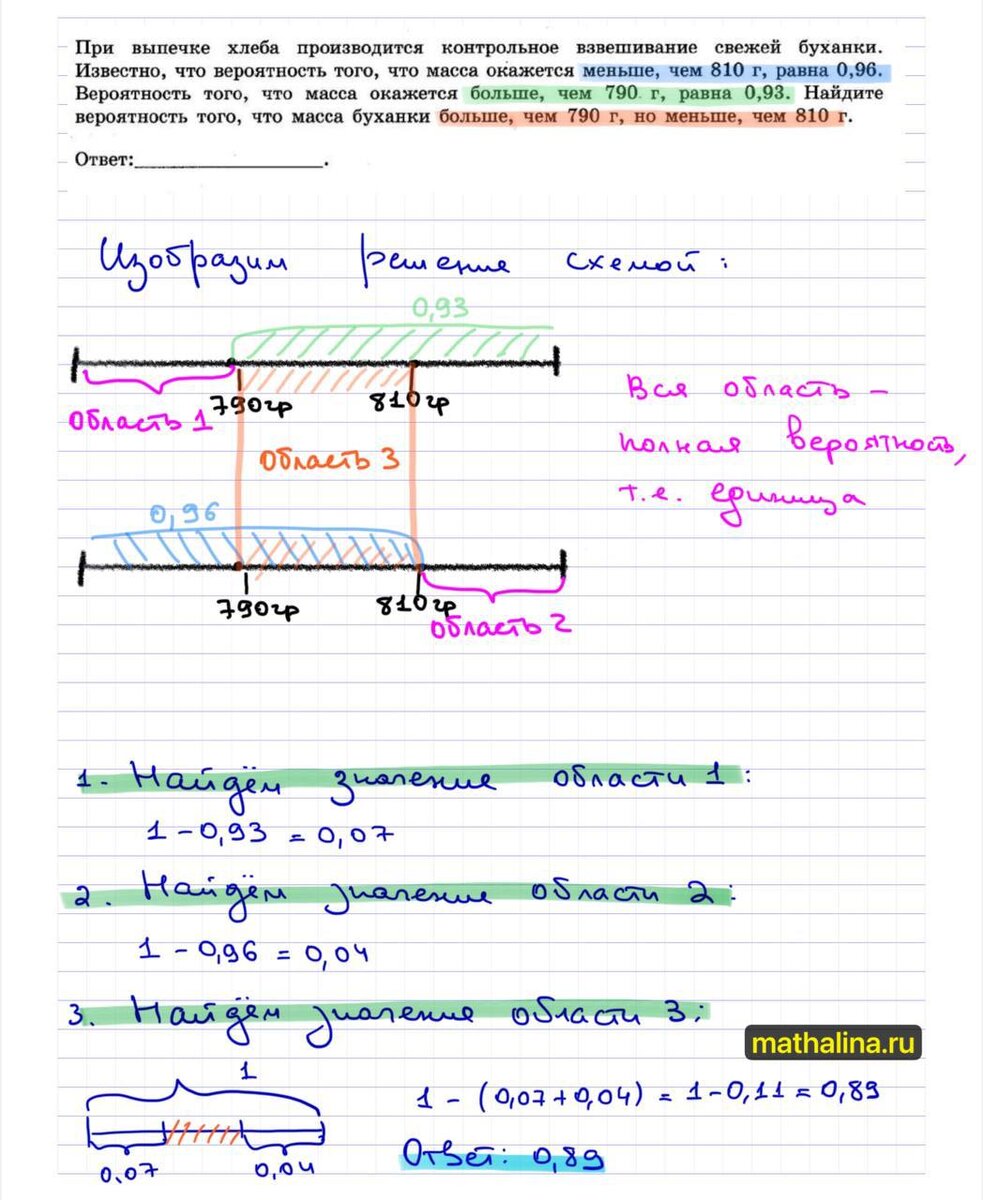 При выпечке хлеба производится контрольное взвешивание свежей буханки.
Известно, что вероятность того, что масса окажется меньше, чем 810 г, равна 0,96.
Вероятность того, что масса окажется больше, чем 790 г, равна 0,93. Найдите
вероятность того, что масса буханки больше, чем 790 г, но меньше, чем 810 г.
Ответ:____________________.
Изобразим решение схемой:
0,93
790гр 810гр
Область 1
Область 3
Вся область –
полная вероятность,
т.е. единица
0,96
790гр 810гр
Область 2
1. Найдём значение области 1:
1 – 0,93 = 0,07
2. Найдём значение области 2:
1 – 0,96 = 0,04
3. Найдём значение области 3:
mathalina.ru
1
1 – (0,07 + 0,04) = 1 – 0,11 = 0,89
0,07 0,04
Ответ: 0,89